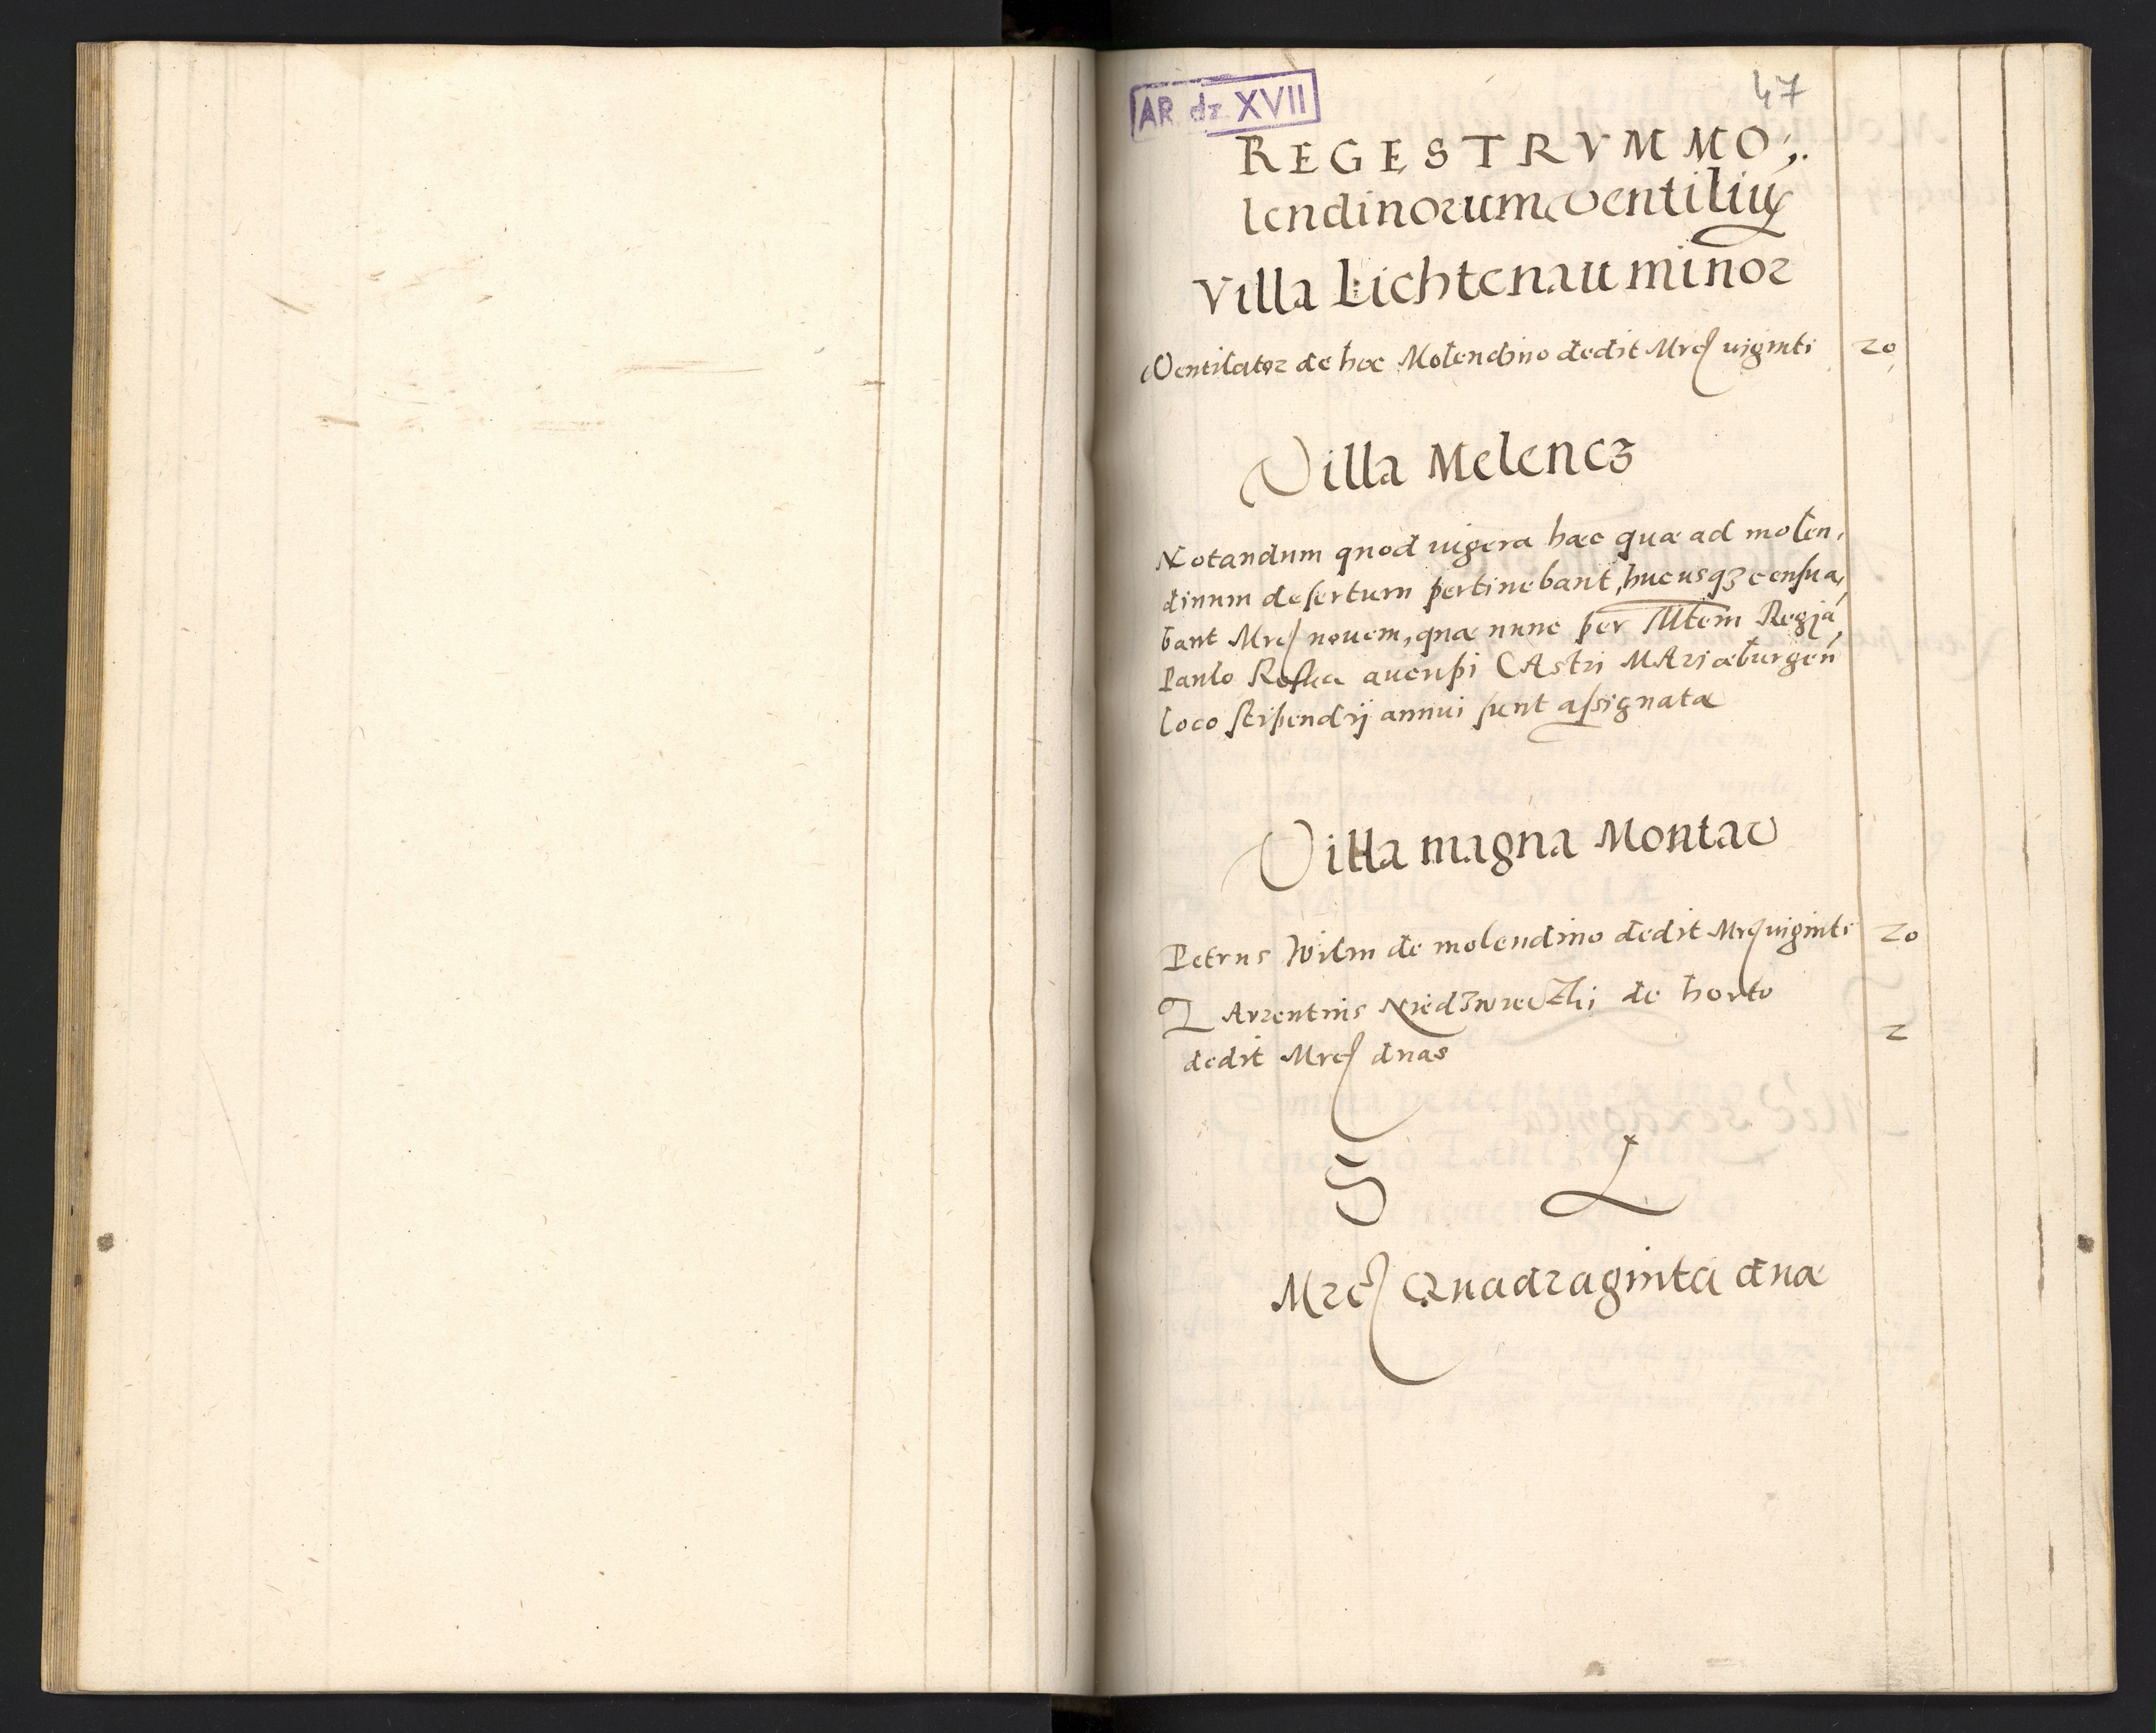 AR dz XVII
47
REGESTRVM MO,.
lendinorum ventiliu
Villa Lichtenau minor
Ventilator de hoc Molendino dedit Mrc viginti 20
Villa Melencz
Notandum quod iugera hæc quæ ad molen,
dinum desertum pertinebant, hucusqz censua,
bant Mrc nouem, quæ nunc per Mtem Regiá
Paulo aucupi Castri Mariæburgeñ
loco stipendij annui sunt assignata
Villa magna Montav
Petrus Wilm de molendino dedit Mrc viginti 20
Laurentius de horto
dedit Mrc duas 2
S L
Mrc Quadraginta duæ